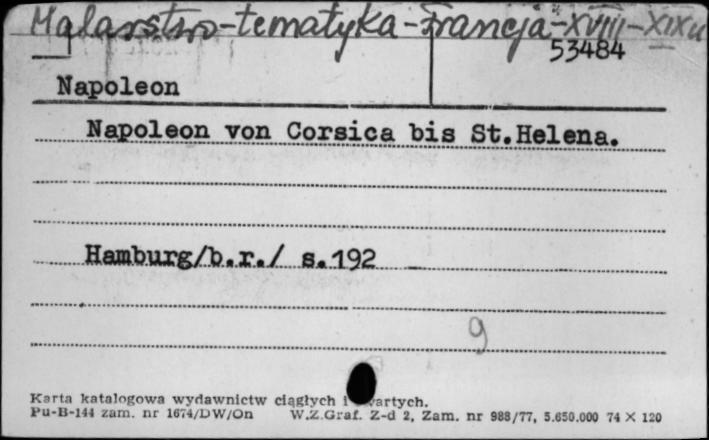 Malarstwo-tematyka-Francja-XVIII-XIXw
53484
Napoleon
Napoleon von Corsica bis St.Helena.
Hamburg/b.r./ s.192
9
Karta katalogowa wydawnictw ciągłych i zwartych.
Pu-B-144 zam. nr 1674/DW/On W.Z.Graf. Z-d 2, Zam. nr 988/77, 5.650.000 74 X 120